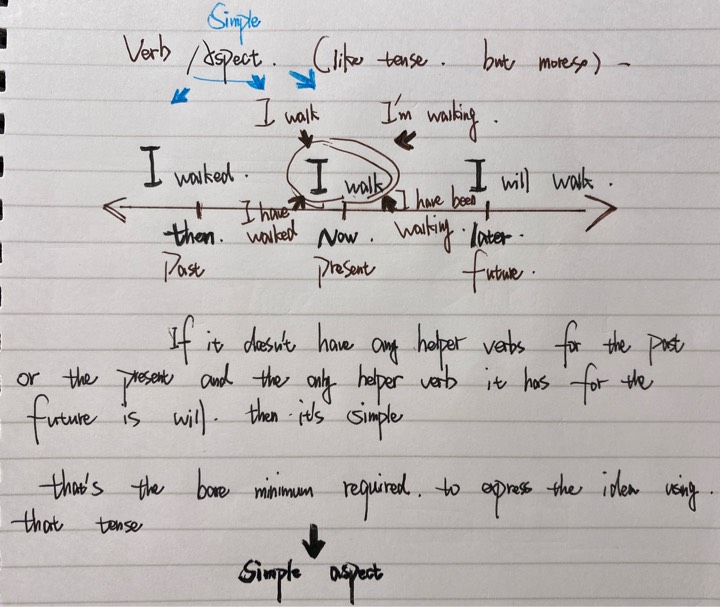 Simple
Verb / Aspect. (like tense. but moreso) -
I walk I'm walking.
I walked. I walk I will walk.
I have walked I have been walking.
then. Now. later.
Past Present future.
If it doesn't have any helper verbs for the past
or the present and the only helper verb it has for the
future is will. then it's simple
that's the bare minimum required. to express the idea using.
that tense
Simple aspect